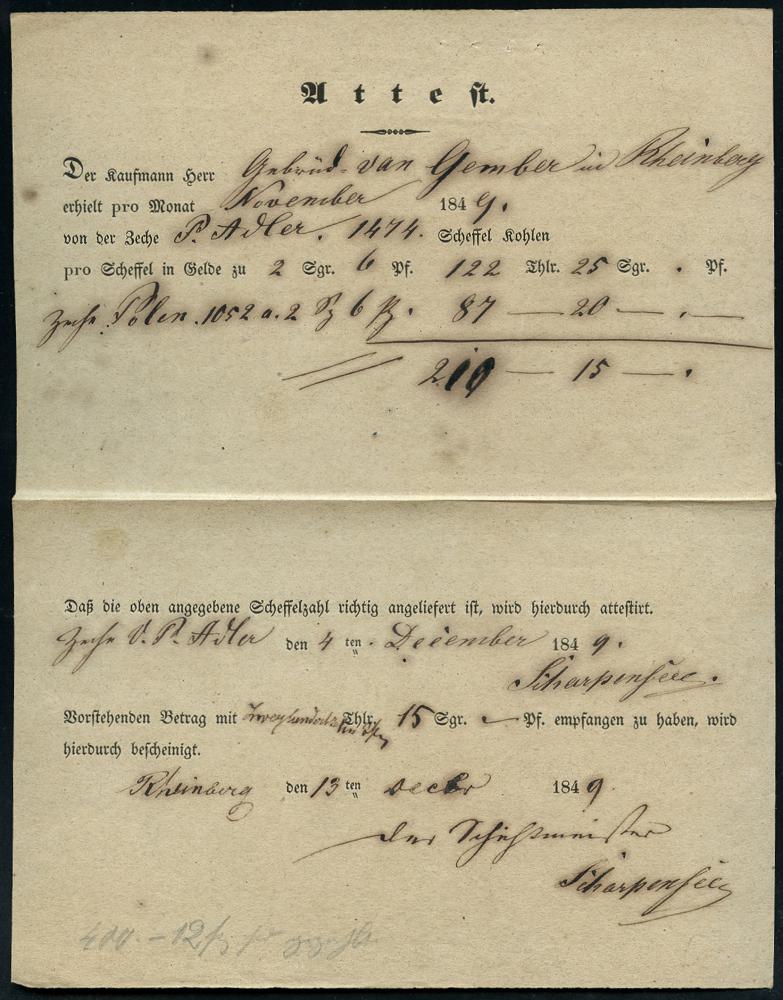 Attest.
Der Kaufmann Herr Gebrüd. van Gember in Rheinberg
erhielt pro Monat November 1849.
von der Zeche P. Adler. 1474. Scheffel Kohlen
pro Scheffel in Gelde zu 2 Sgr. 6 Pf. 122 Thlr. 25 Sgr. . Pf.
Zeche Polen. 1052 a. 2 Sg 6 Pf. 87 — 20 — . —
210 — 15 — .
Daß die oben angegebene Scheffelzahl richtig angeliefert ist, wird hierdurch attestirt.
Zeche V. P. Adler den 4 ten. December 1849.
Scharpensеel.
Vorstehenden Betrag mit Zweyhundertzehn Thlr. 15 Sgr. — Pf. empfangen zu haben, wird
hierdurch bescheinigt.
Rheinberg den 13 ten Decbr 1849
Der Schichtmeister
Scharpenseel
400. – 12